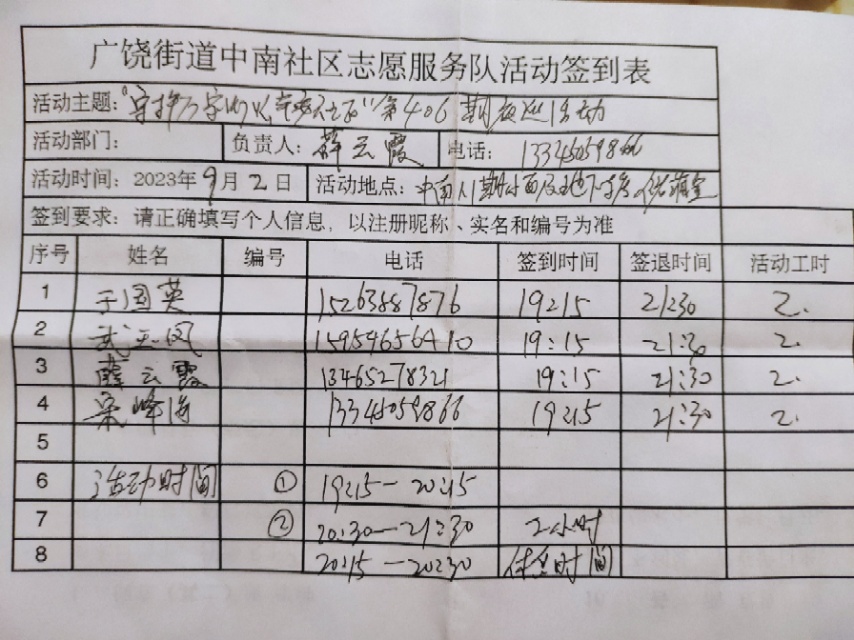 广饶街道中南社区志愿服务队活动签到表
活动主题: 第406期夜巡活动
活动部门: 负责人: 薛云霞 电话: 13345059866
活动时间: 2023年9月2日 活动地点: 中南
签到要求: 请正确填写个人信息, 以注册昵称、实名和编号为准
序号 姓名 编号 电话 签到时间 签退时间 活动工时
1 于国英 15263887876 19:15 21:30 2.
2 武玉凤 15954656410 19:15 21:30 2.
3 薛云霞 13465278321 19:15 21:30 2.
4 梁峰海 13345059866 19:15 21:30 2.
5
6 活动时间 ① 19:15-20:15
7 ② 20:30-21:30 2小时
8 20:15-20:30 休息时间